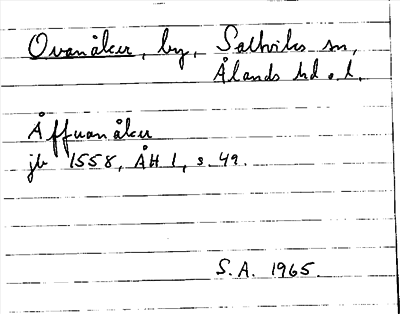 Ovanåker, by, Saltviks sn,
Ålands hd o. l.
Åffuanåker
jb 1558, ÅH 1, s. 49.
S.A. 1965.